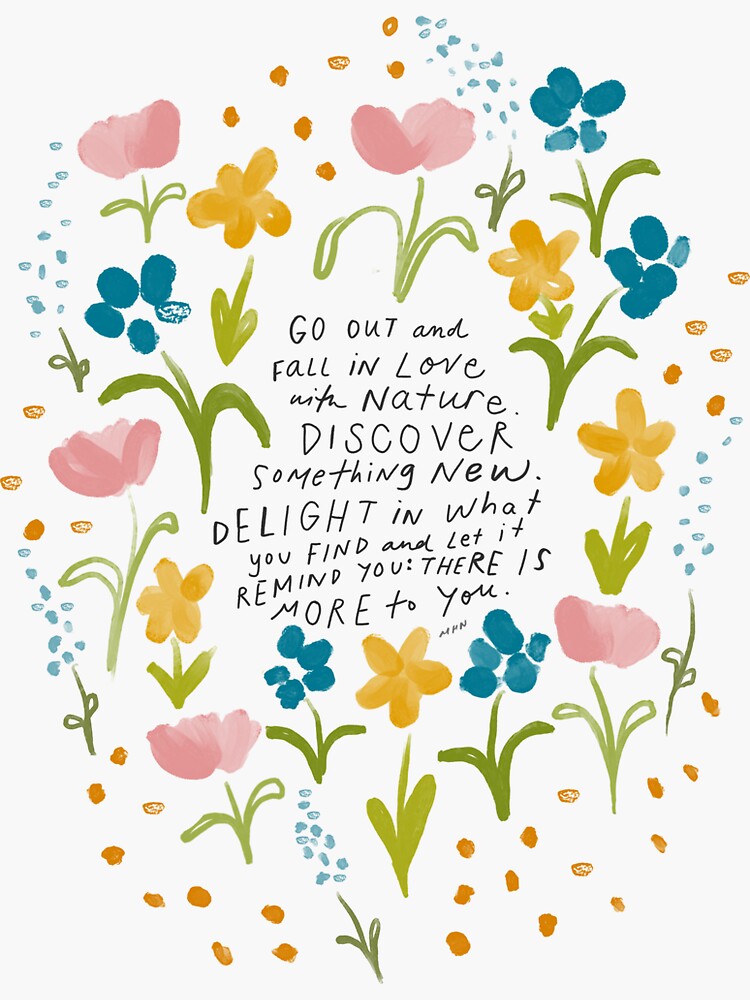 GO OUT and
FALL IN LOVE
with NATURE.
DISCOVER
Something NEW.
DELIGHT in what
you FIND and LET it
REMIND YOU: THERE IS
MORE to You.
MHN